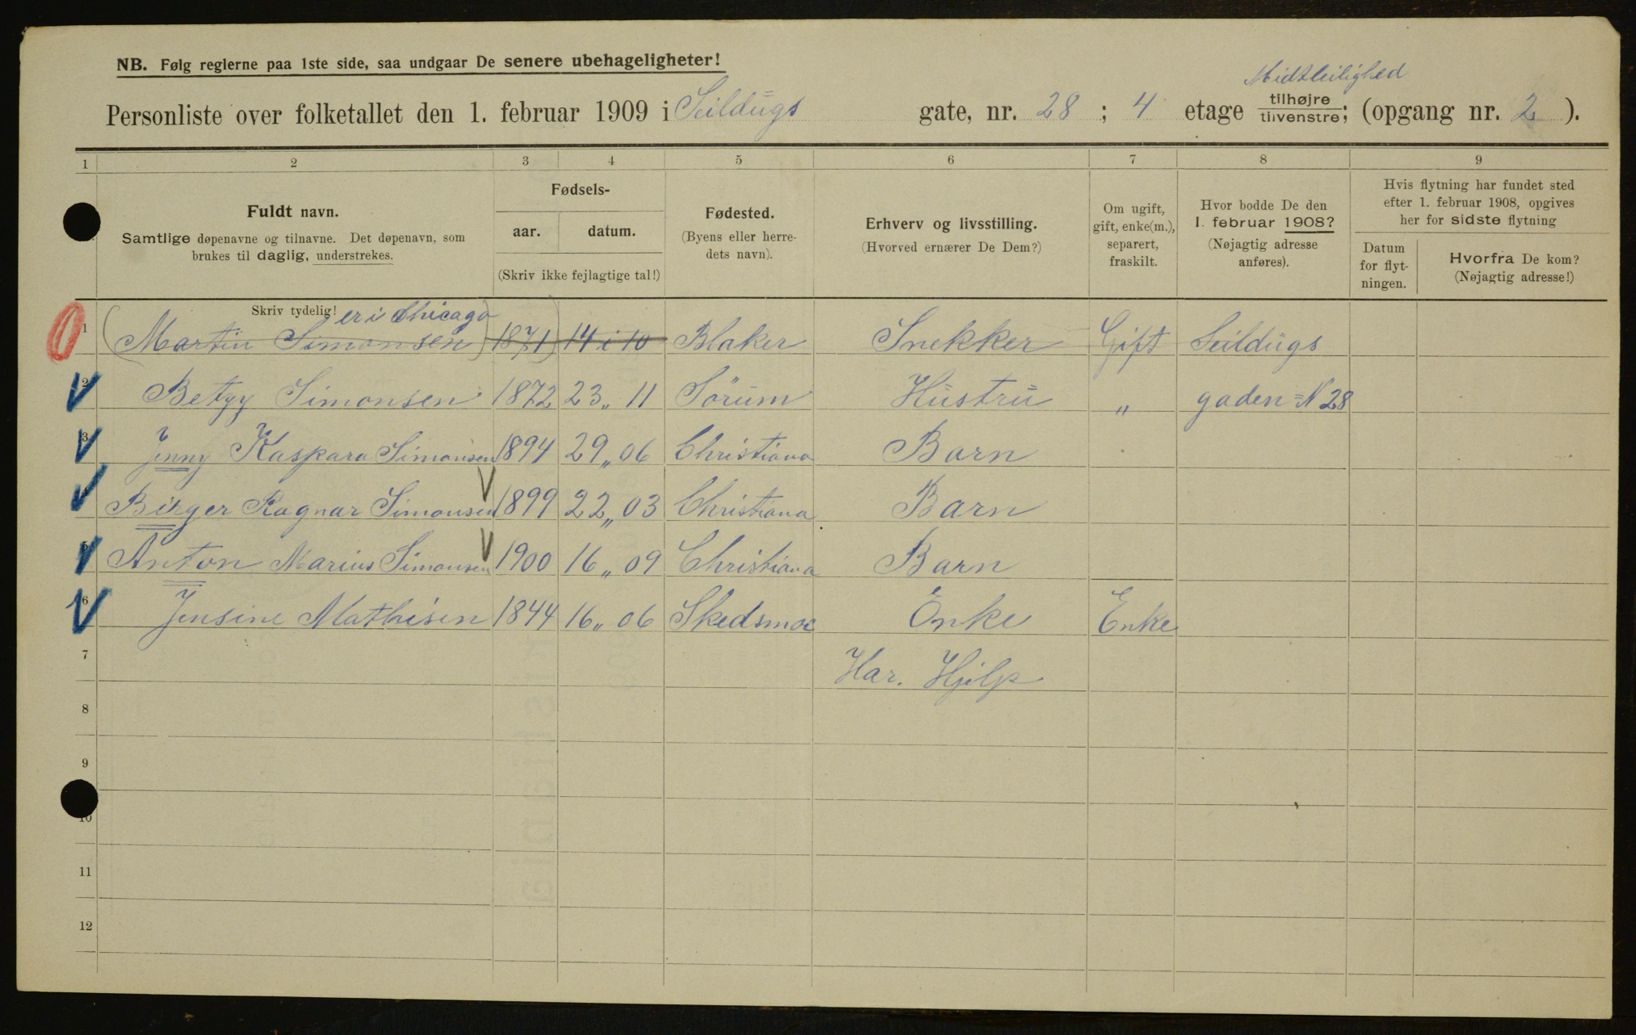 NB. Følg reglerne paa 1ste side, saa undgaar De senere ubehageligheter!
Midtleilighed
Personliste over folketallet den 1. februar 1909 i Seildugs gate, nr. 28 ; 4 etage tilhøjre tilvenstre; (opgang nr. 2 ).
1 2 3 4 5 6 7 8 9
Fuldt navn.
Samtlige døpenavne og tilnavne. Det døpenavn, som
brukes til daglig, understrekes.
Skriv tydelig!
Fødsels-
aar. datum.
(Skriv ikke fejlagtige tal!)
Fødested.
(Byens eller herre-
dets navn).
Erhverv og livsstilling.
(Hvorved ernærer De Dem?)
Om ugift,
gift, enke(m.),
separert,
fraskilt.
Hvor bodde De den
1. februar 1908?
(Nøjagtig adresse
anføres).
Hvis flytning har fundet sted
efter 1. februar 1908, opgives
her for sidste flytning
Datum
for flyt-
ningen.
Hvorfra De kom?
(Nøjagtig adresse!)
er i Chicago
1 (Martin Simonsen) 1871) 14 i 10 Blaker Snekker Gift Seildugs
2 Betzy Simonsen 1872 23 „ 11 Sörum Hustru „ gaden N 28
3 Jenny Kaspara Simonsen 1894 29 „ 06 Christiana Barn
Birger Ragnar Simonsen 1899 22 „ 03 Christiana Barn
5 Anton Marius Simonsen 1900 16 „ 09 Christiana Barn
6 Jensine Mathisen 1844 16 „ 06 Skedsmoe Enke Enke
7 Har. Hjelp
8
9
10
11
12